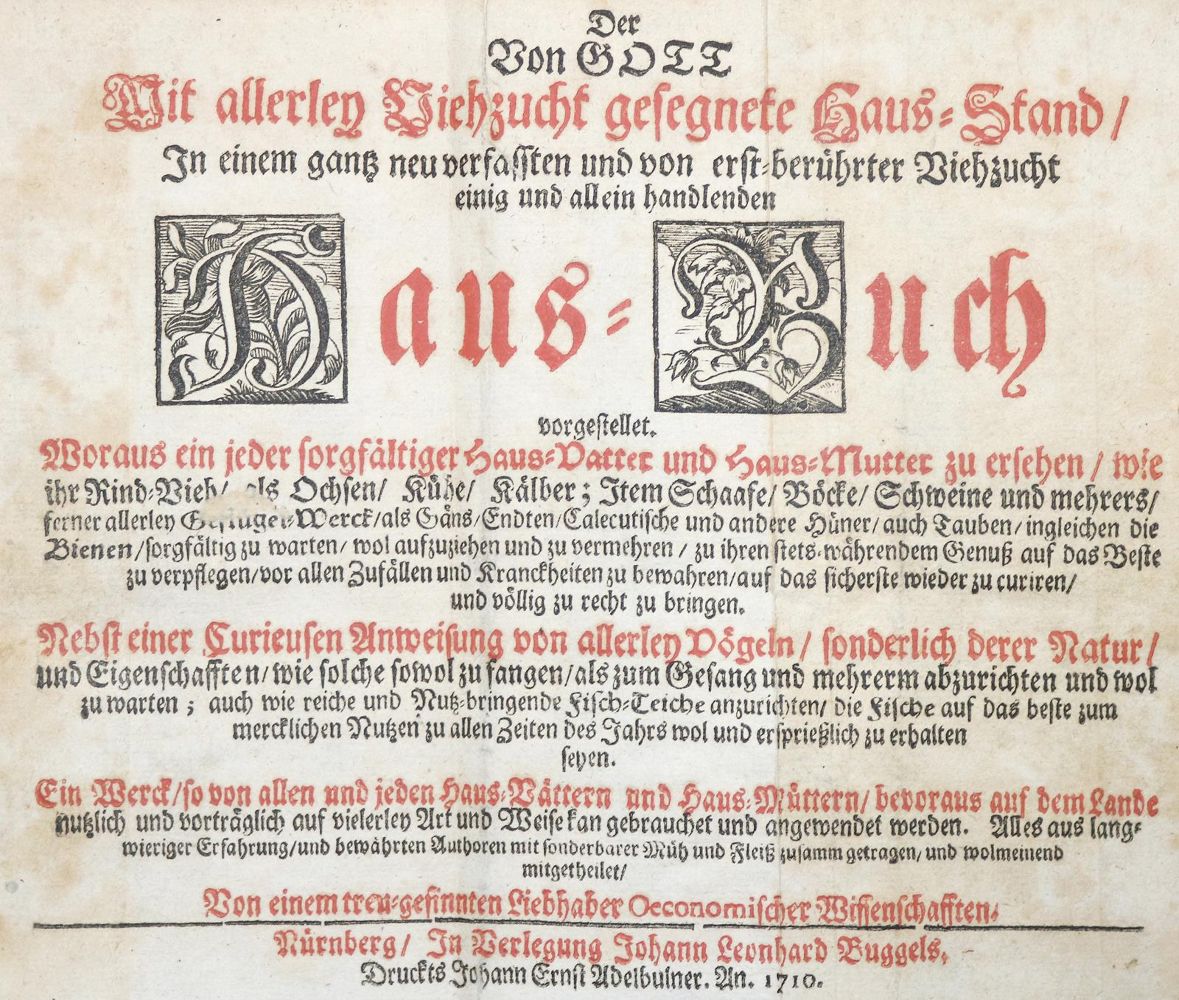 Der
Von GOTT
Mit allerley Viehzucht gesegnete Haus-Stand/
In einem gantz neu verfassten und von erst-berührter Viehzucht
einig und allein handlenden
Haus-Buch
vorgestellet.
Woraus ein jeder sorgfältiger Haus-Vatter und Haus-Mutter zu ersehen/ wie
ihr Rind-Vieh/ als Ochsen/ Kühe/ Kälber; Item Schaafe/ Böcke/ Schweine und mehrers/
ferner allerley Geflügel-Werck/als Gäns/Endten/Calecutische und andere Hüner/ auch Tauben/ingleichen die
Bienen/sorgfältig zu warten/ wol aufzuziehen und zu vermehren/ zu ihren stets-währendem Genuß auf das Beste
zu verpflegen/vor allen Zufällen und Kranckheiten zu bewahren/auf das sicherste wieder zu curiren/
und völlig zu recht zu bringen.
Nebst einer Curieusen Anweisung von allerley Vögeln/ sonderlich derer Natur/
und Eigenschafften/wie solche sowol zu fangen/als zum Gesang und mehrerm abzurichten und wol
zu warten; auch wie reiche und Nutz-bringende Fisch-Teiche anzurichten/ die Fische auf das beste zum
mercklichen Nutzen zu allen Zeiten des Jahrs wol und ersprießlich zu erhalten
seyen.
Ein Werck/so von allen und jeden Haus-Vättern und Haus-Müttern/ bevoraus auf dem Lande
nutzlich und vorträglich auf vielerley Art und Weise kan gebrauchet und angewendet werden. Alles aus lang-
wieriger Erfahrung/und bewährten Authoren mit sonderbarer Müh und Fleiß zusamm getragen/ und wolmeinend
mitgetheilet/
Von einem treu-gesinnten Liebhaber Oeconomischer Wissenschafften.
Nürnberg/ In Verlegung Johann Leonhard Buggels,
Druckts Johann Ernst Adelbulner. An. 1710.